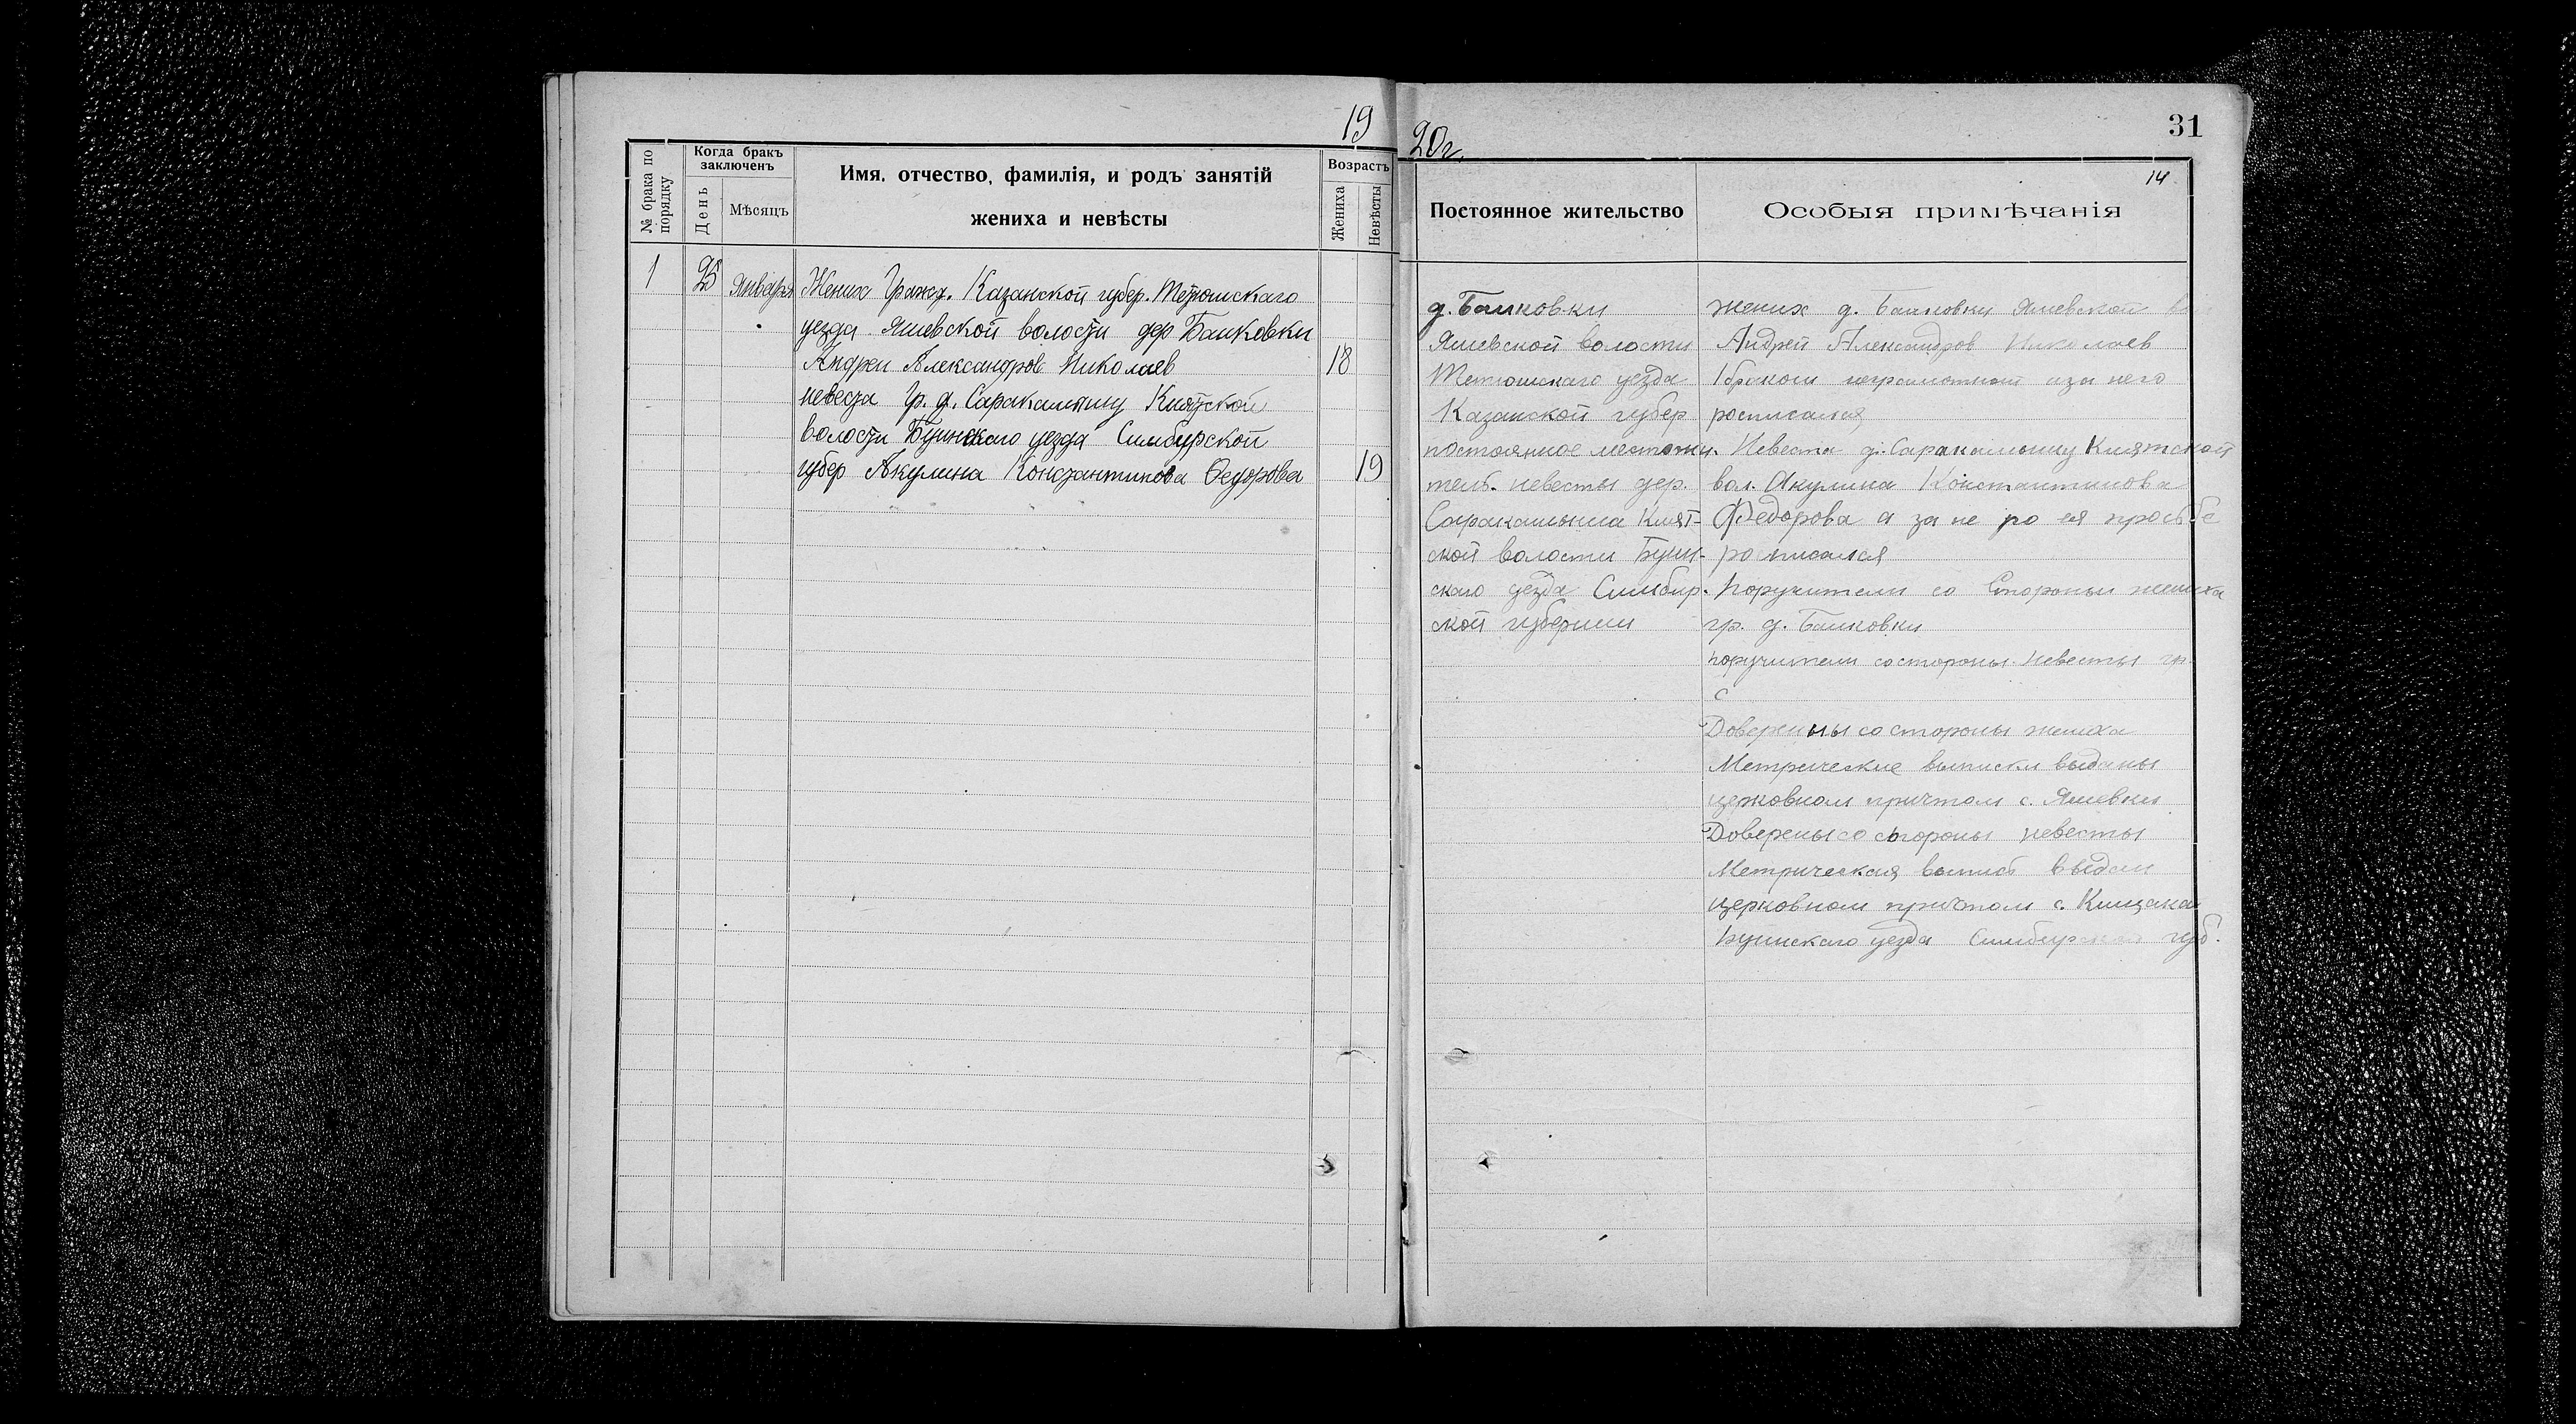 19
№ брака по порядку
Когда бракъ заключенъ
День
Мѣсяцъ
Имя, отчество, фамилія, и родъ занятій
жениха и невѣсты
Возрастъ
Жениха
Невѣсты
1 25 Января Жених Гражд. Казанской губер. Тетюшскаго
уезда Яшевской волости дер Башковки
Андрей Александров Николаев 18
невеста Гр. д. Саракамышу Киятской
волости Буинскаго уезда Симбирской
губер Акулина Константинова Ѳедорова 19
20г.
31
14
Постоянное жительство
Особыя примѣчанія
д. Башковки
Яшевской волости
Тетюшскаго уезда
Казанской губер
постоянное местожи-
тель. невесты дер.
Саракамыша Кият-
ской волости Буин-
скаго уезда Симбир-
ской губернии
жених д. Башковки Яшевской
Андрей Александров Николаев
1 браком неграмотный а за него
росписался
Невеста д. Саракамышу Киятской
вол. Акулина Константинова
Федорова а за не по ея просьбе
росписался
Поручители со Стороны жениха
гр. д. Башковки
поручители со стороны невесты гр.
с
Доверины со стороны жениха
Метрические выписки выданы
церковном причтом с. Яшевки
Доверены со стороны невесты
Метрическая выпись выдан
церковном причтом с. Кищака
Буинскаго уезда Симбирской губ.